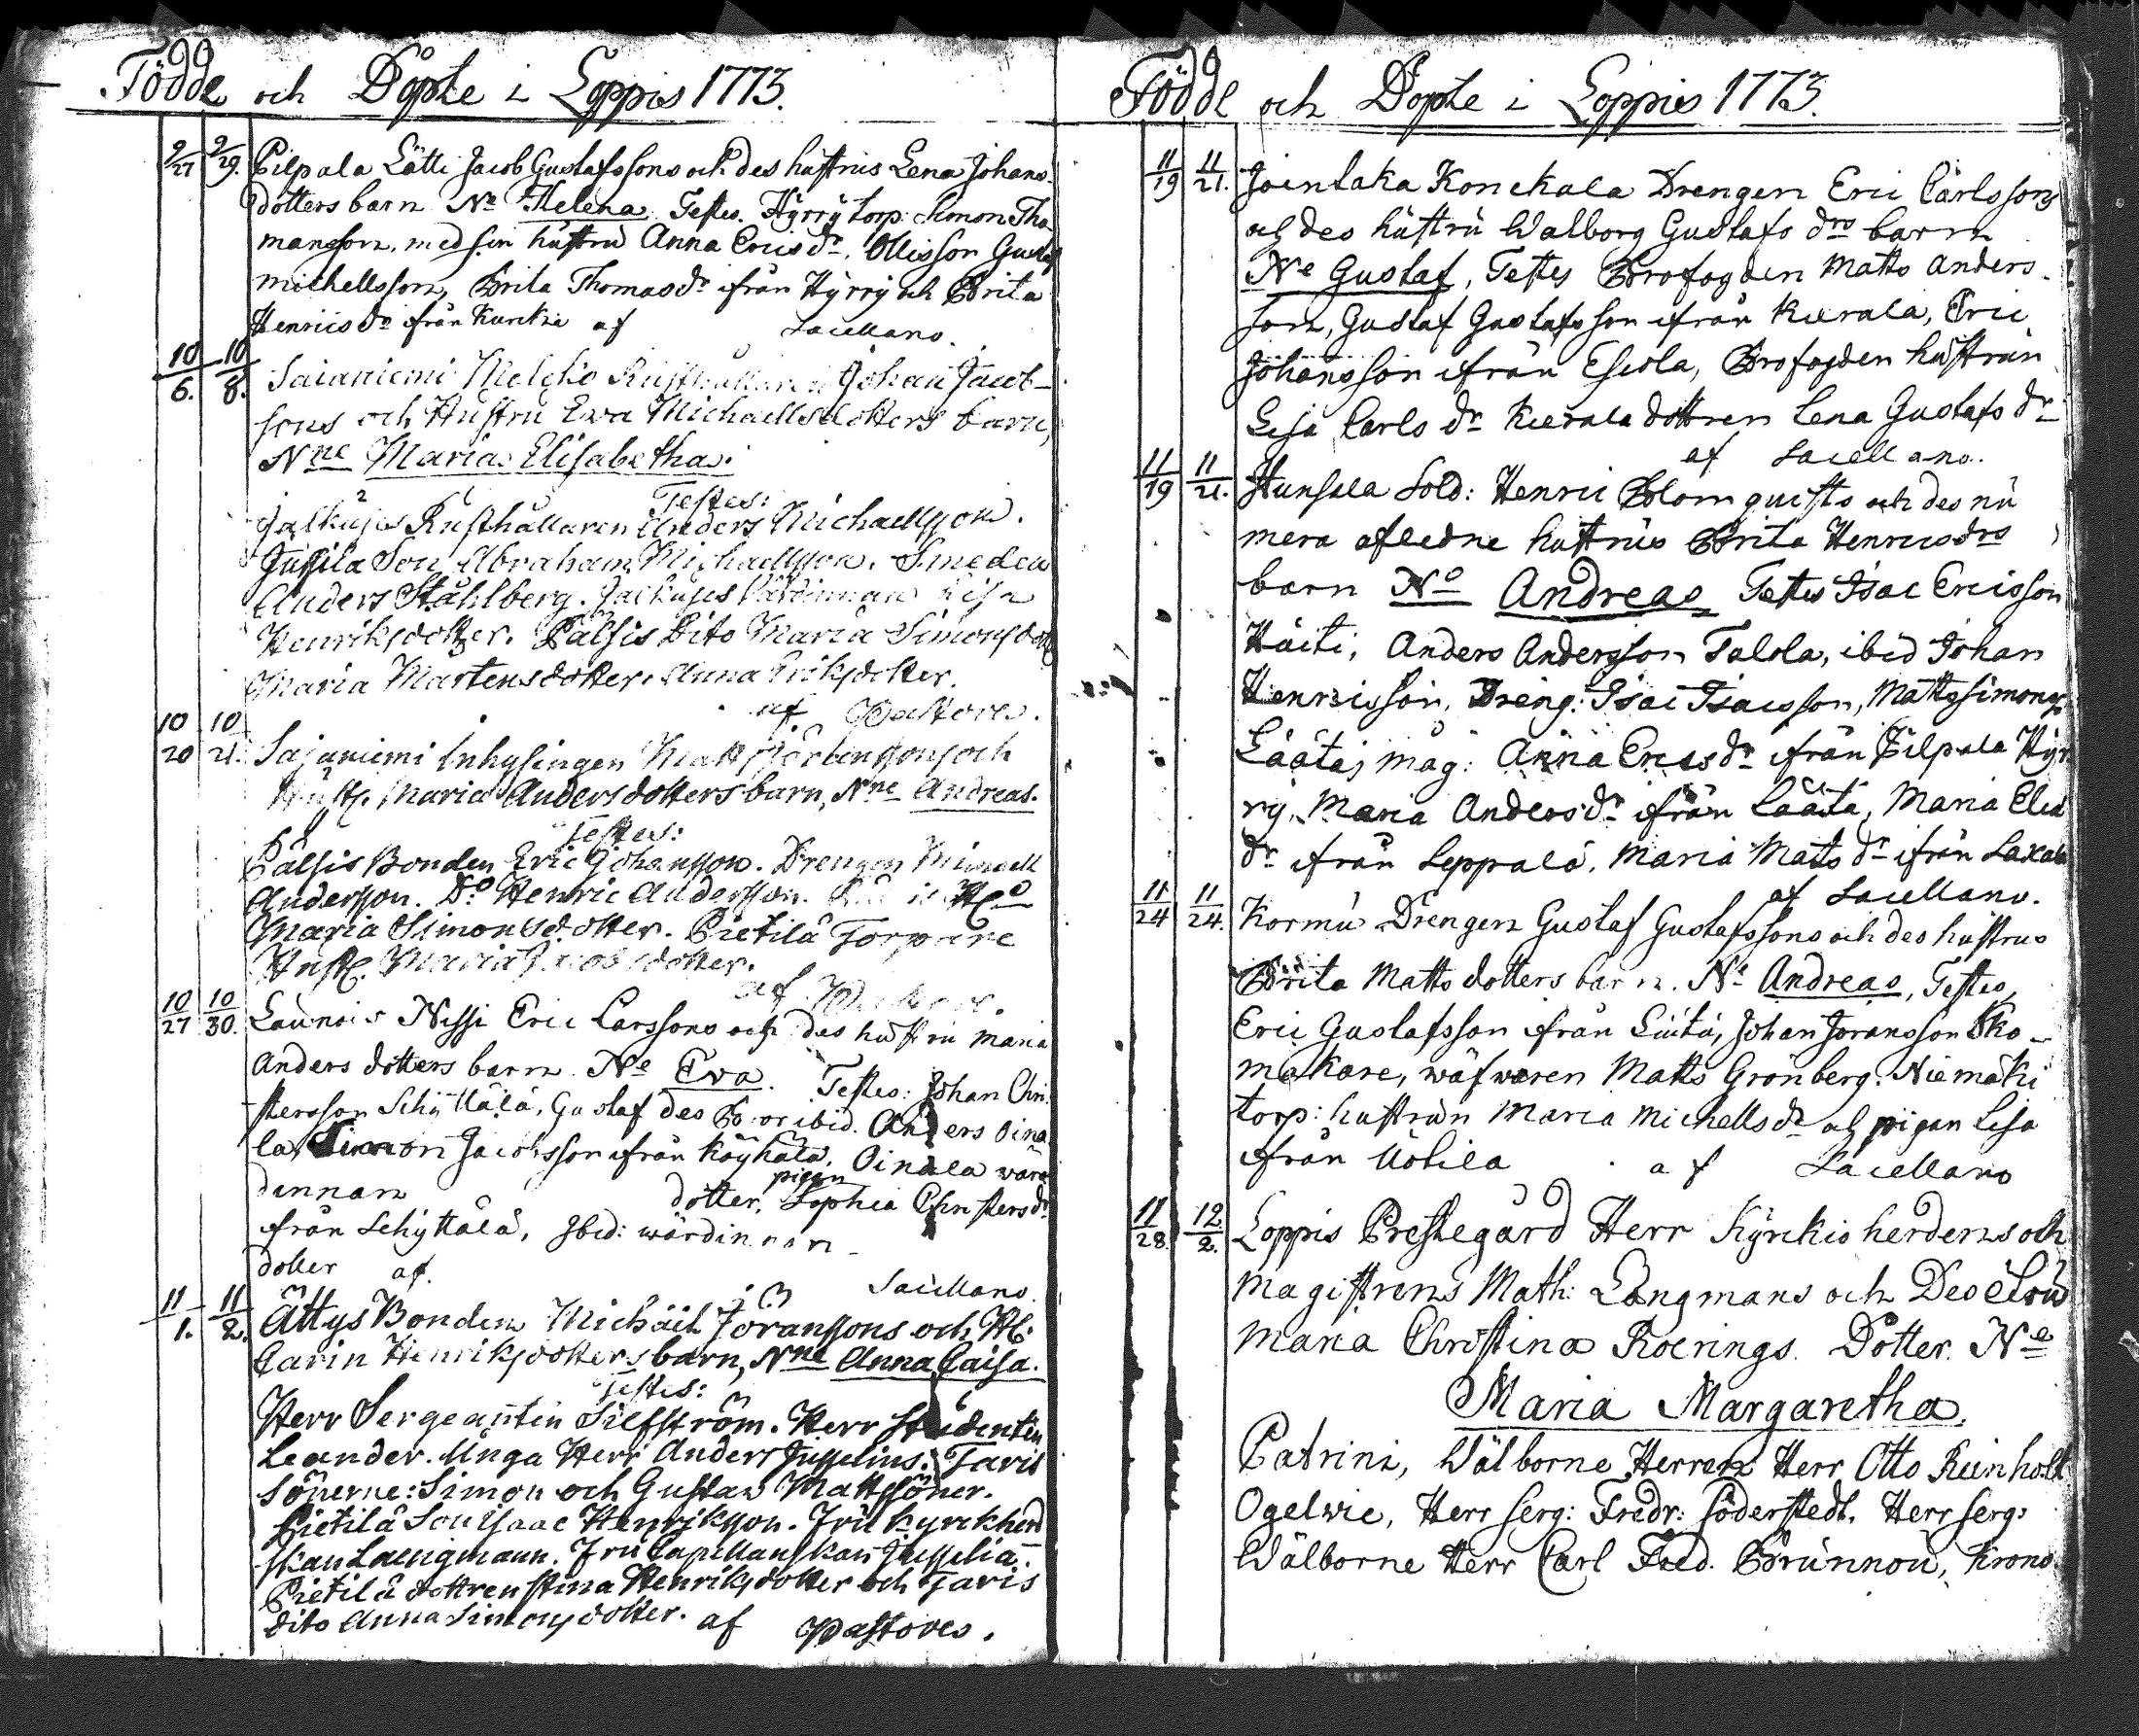 Födde och Döpte i Loppis 1773.
9/27 9/29. Pilpala Lätti Jacob Gustafssons och des hustrus Lena Johans-
dotters barn Ne Helena. Testes. Hyrry torp: Simon Tho-
mansson, med sin hustru Anna Erics dr, Ollisson Gustaf
Michellsson, Brita Thomas dr ifrån Hyrry och Brita
Henrics dr ifrån Kurckie af Sacellano.
10/6. 10/8. Saianiemi Melcko Rusthållaren Johan Jacob-
sons och Hustru Ewa Michaellsdotters barn,
Nne Maria Elisabetha.
Testes:
Jalkujes Rusthållaren Anders Michaellsson.
Jussila Son Abraham Michaellsson. Smeden
Anders Ståhlberg. Jalkujes Värdinnan Lisa
Henriksdotter. Pälsis Dito Maria Simonsdott
Maria Martensdotter. Anna Eriksdotter.
af Pastore.
10/20 10/21. Sajaniemi Inhysingen Matts Jörbensons och
Hust. Maria Andersdotters barn, Nne Andreas.
Testes:
Pälsis Bonden Eric Johansson. Drengen Michaell
Andersson. Do Henric Andersson.
Maria Simonsdotter. Pietilä Torpare
Hust. Maria Jacobsdotter.
af Pastore.
10/27 10/30. Launois Nissi Eric Larssons och des hustru Maria
Anders dotters barn. Ne Eva. Testes: Johan Chri-
stersson Schyttälä, Gustaf des Bror ibid. Anders Oina-
la, Simon Jacobsson ifrån Köyhälä, Oinala wär-
dinnan dotter, pigan Sophia Christersdr
ifrån Schyttälä, Ibid: wärdinnan
dotter af Sacellano.
11/1. 11/2. Ättys Bonden Michäel Göranssons och H:
Carin Henriksdotters barn, Nne Anna Caisa.
Testes:
Herr Sergeantin Silfström. Herr Studenten
Leander. Unga Herr Anders Jusselius. Taris
Sönerne: Simon och Gustaw Mattssöner.
Pietilä Son Isaac Henriksson. Fru Kyrckherd
skan Laengmann. Fru Capellanskan Jusselia.
Pietilä dottren Stina Henriksdotter och Taris
dito Anna Simonsdotter. af Pastores.
Födde och Döpte i Loppis 1773.
11/19 11/21. Joentaka Konckala Drengen Eric Carlssons
och des hustru Walborg Gustafs drs barn
Ne Gustaf, Testes Brofogden Matts Anders-
son, Gustaf Gustafsson ifrån Kierala, Eric
Johansson ifrån Eskola, Brofogden hustrun
Lisa Carls dr Kierala dottren Lena Gustafs dr
af Sacellano.
11/19 11/21. Hunsala Sold: Henric Blomquists och des nu
mera afledne hustrus Brita Henricsdrs
barn No Andreas Testes Isac Ericsson
Häiti, Anders Andersson Talola, ibid Johan
Henricsson, Dreng: Isac Isacsson, Matts Simonss
Läätäj mäg: Anna Erics dr ifrån Pilpala Hyr
ry, Maria Anders dr ifrån Läätä, Maria Elia
dr ifrån Leppälä, Maria Matts dr ifrån Saxala
af Sacellano.
11/24 11/24. Kormu Drengen Gustaf Gustafssons och des hustrus
Brita Matts dotters barn. Ne Andreas, Testes,
Eric Gustafsson ifrån Luutä, Johan Joransson Sko-
makare, wäfwaren Matts Grönberg. Niemäki
torp: hustrun Maria Michells dr och pigan Lisa
ifrån Uotila af Sacellano
11/28. 12/2. Loppis Prestegård Herr Kyrckio herdens och
Magistrens Math: Långmans och Des Fru
Maria Christina Roerings Dotter. Ne
Maria Margaretha.
Patrini, Wälborne Herren Herr Otto Reinholt
Ogelwie, Herr Serg: Fredr: Söderstedt, Herr Serg:
Wälborne Herr Carl Fred. Brunnou, Krono